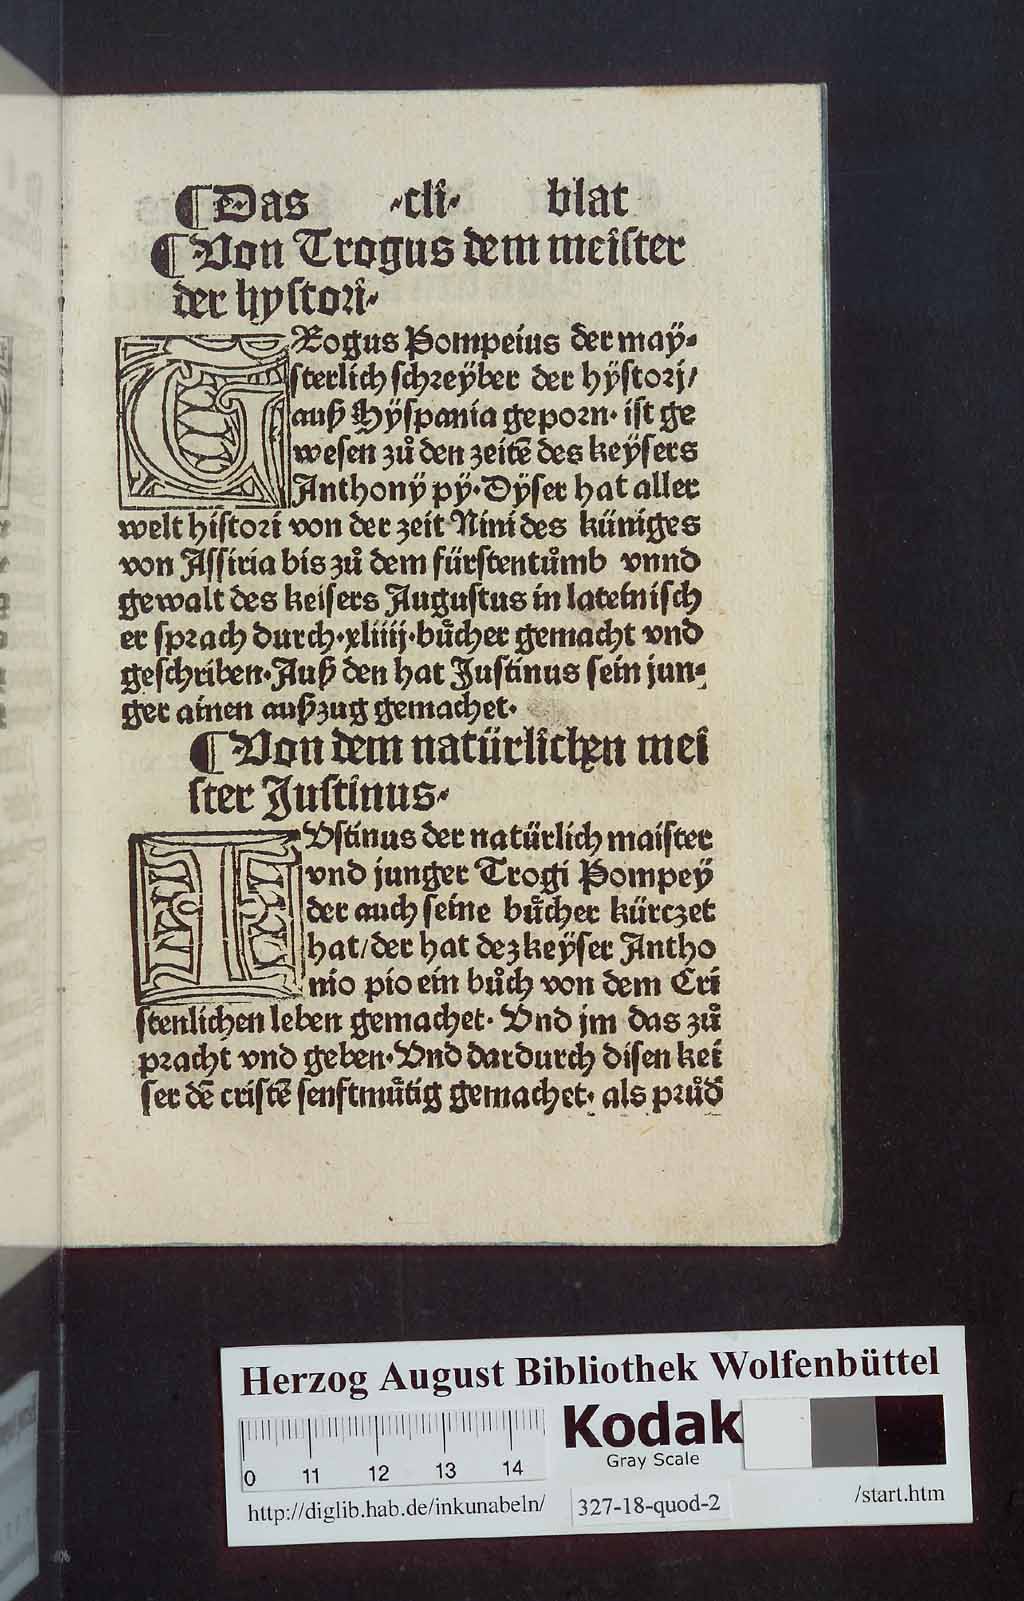 ¶ Das ·cli· blat
¶ Von Trogus dem meister
der hystori·
TRogus Pompeius der maÿ-
sterlich schreÿber der hÿstorj/
auß Hÿspania geporn· ist ge
wesen zů den zeitē des keÿsers
Anthonÿ pÿ· Dÿser hat aller
welt histori von der zeit Nini des küniges
von Assiria bis zů dem fürstentůmb vnnd
gewalt des keisers Augustus in lateinisch
er sprach durch·xliiij·bůcher gemacht vnd
geschriben· Auß den hat Justinus sein jun-
ger ainen außzug gemachet·
¶ Von dem natürlichen mei
ster Justinus·
IVstinus der natürlich maister
vnd junger Trogi Pompeÿ
der auch seine bůcher kürczet
hat/der hat dez keÿser Antho
nio pio ein bůch von dem Cri
stenlichen leben gemachet· Vnd jm das zů
pracht vnd geben· Vnd dardurch disen kei
ser dē cristē senftmůtig gemachet· als průd̄
Herzog August Bibliothek Wolfenbüttel
Kodak
Gray Scale
0 11 12 13 14
http://diglib.hab.de/inkunabeln/
327-18-quod-2
/start.htm